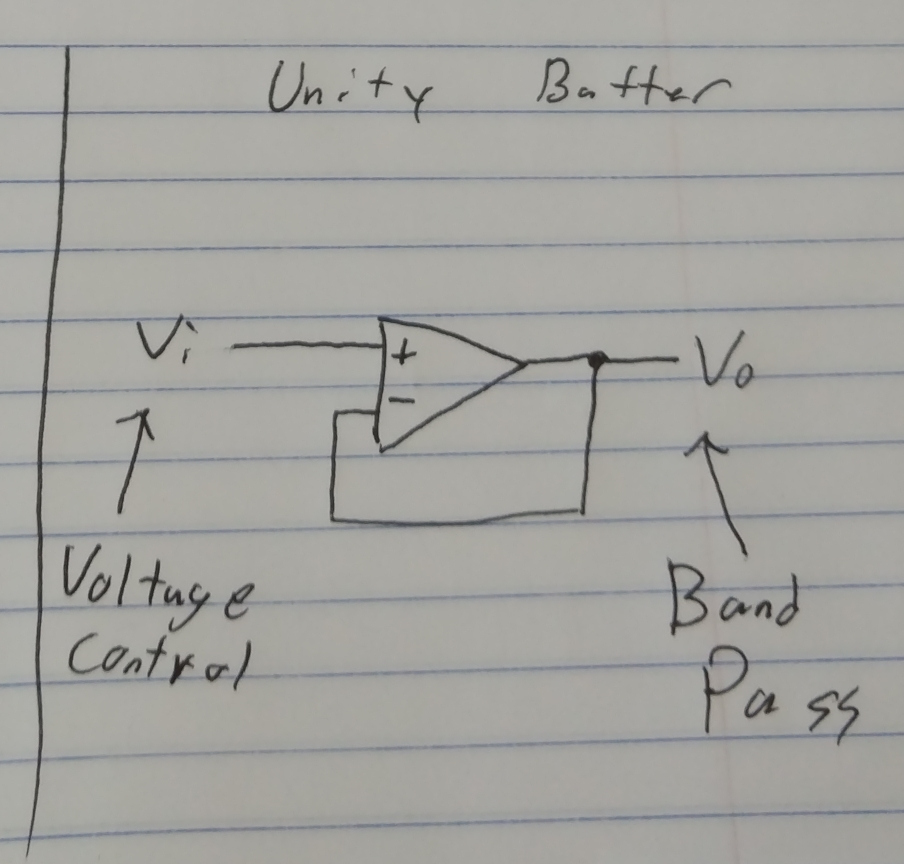 Unity Buffer
Vi
+
-
Vo
Voltage
Control
Band
Pass